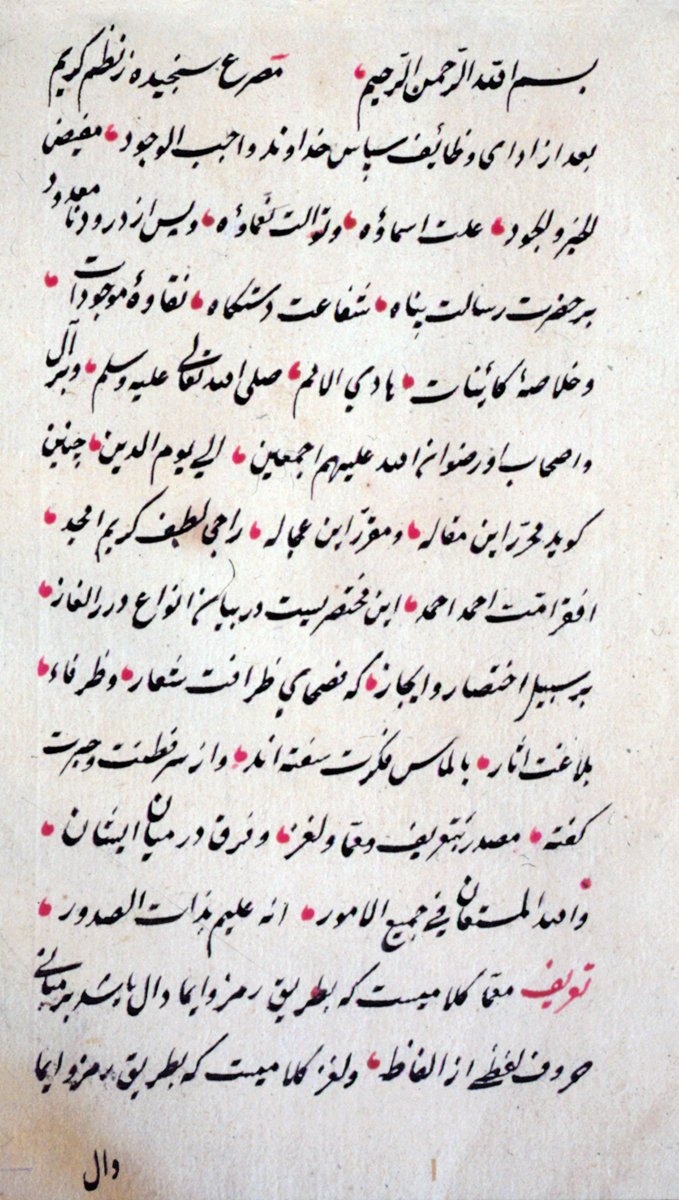 بسم الله الرّحمن الرّحیم مصرع سنجیده ز نظم کریم
بعد از ادای وظائف سپاس خداوند واجب الوجود مفیض
الخیر والجود علت اسماؤه وتوالت نعماؤه وپس از درود نامعدود
بر حضرت رسالت پناه شفاعت دستگاه نقاوهٔ موجودات
وخلاصهٔ کائنات هادي الامم صلی الله تعالی علیه وسلم وبر آل
واصحاب او رضوان الله علیهم اجمعین الي یوم الدین چنین
کوید محرّر این مقاله ومقرّر این عجاله راجی لطف کریم امجد
افقر امّت احمد احمد این مختصریست در بیان انواع درر الغاز
بر سبیل اختصار وایجاز که فصحاي ظرافت شعار وظرفاء
بلاغت آثار بالماس فکرت سفته اند واز سر فطنت وخبرت
کفته مصدر بتعریف معمّا ولغز وفرق در میان ایشان
والله المستعان في جمیع الامور انه علیم بذات الصدور
تعریف معمّا کلامیست که بطریق رمز وایما دال باشد بر مبانی
حروف لفظي از الفاظ ولغز کلامیست که بطریق رمز وایما
دال